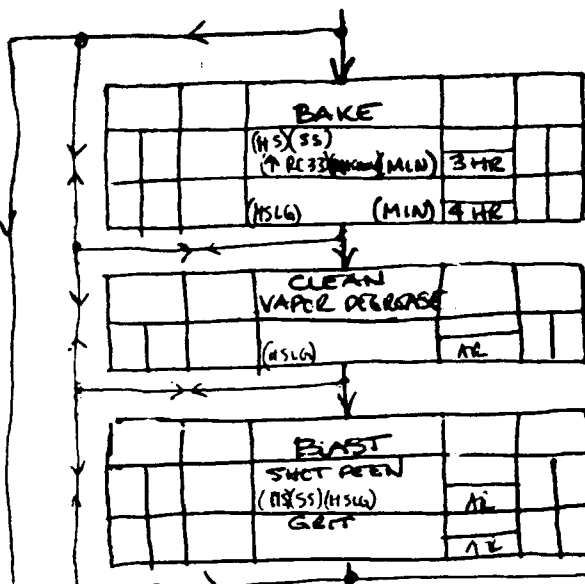 BAKE
(HS)(SS)
(↑ RC33) (MIN) 3 HR
(HSLG) (MIN) 4 HR
CLEAN
VAPOR DEGREASE
(HSLG) AR
BLAST
SHOT PEEN
(HS)(SS)(HSLG) AR
GRIT
AR